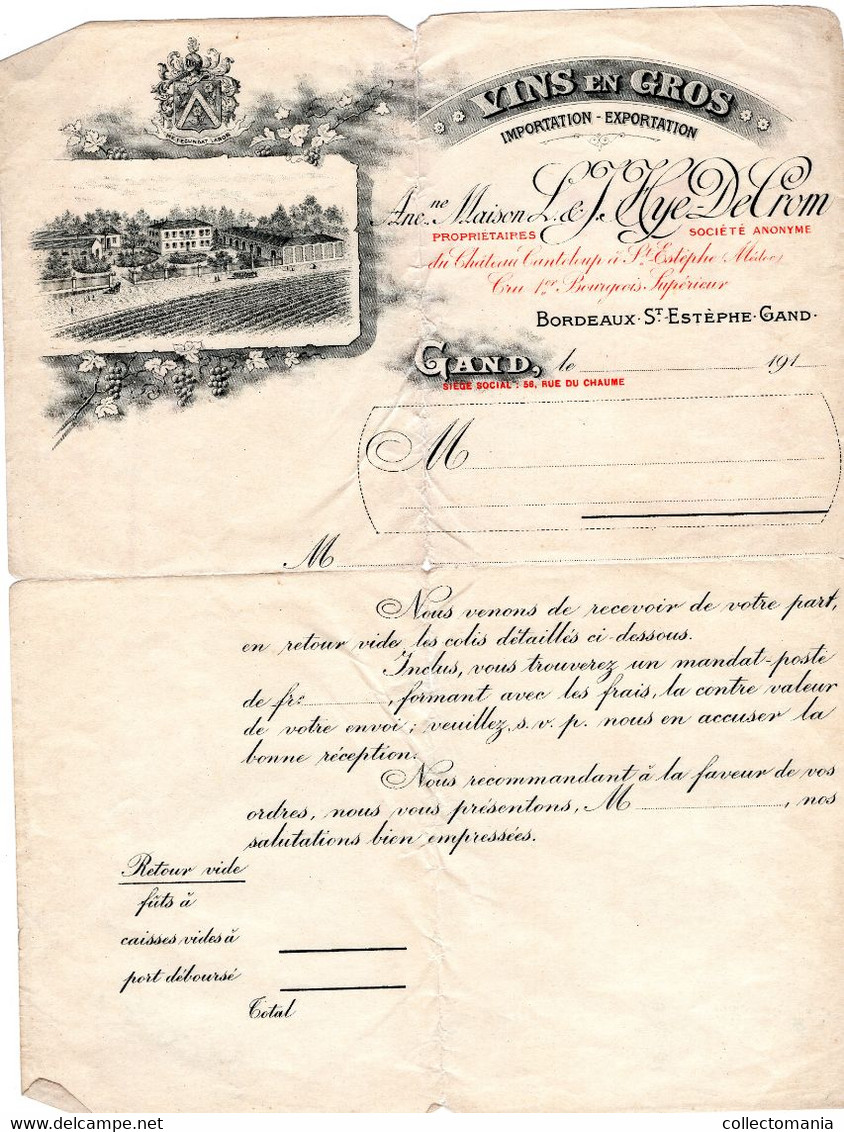 VINS EN GROS
IMPORTATION - EXPORTATION
FECUNDAT LABOR
Anc.ne Maison L. & J. Hye-DeCrom
PROPRIÉTAIRES SOCIÉTÉ ANONYME
du Château Canteloup à St Estèphe (Médoc)
Cru 1er Bourgeois Supérieur
BORDEAUX · ST-ESTÈPHE · GAND ·
GAND, le 191
SIÈGE SOCIAL : 56, RUE DU CHAUME
M
M
Nous venons de recevoir de votre part,
en retour vide les colis détaillés ci-dessous.
Inclus, vous trouverez un mandat-poste
de frs , formant avec les frais, la contre valeur
de votre envoi ; veuillez, s. v. p. nous en accuser la
bonne réception.
Nous recommandant à la faveur de vos
ordres, nous vous présentons, M , nos
salutations bien empressées.
Retour vide
fûts à
caisses vides à
port déboursé
Total
collectomania